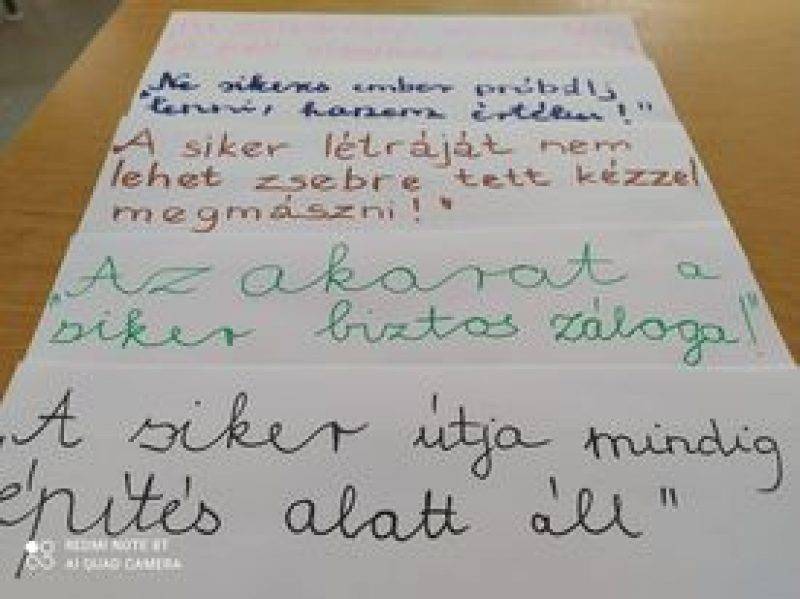 „Ne sikeres ember próbálj
lenni, hanem értékes!"
A siker létráját nem
lehet zsebre tett kézzel
megmászni!"
„Az akarat a
siker biztos záloga!"
„A siker útja mindig
építés alatt áll"
REDMI NOTE 8T
AI QUAD CAMERA